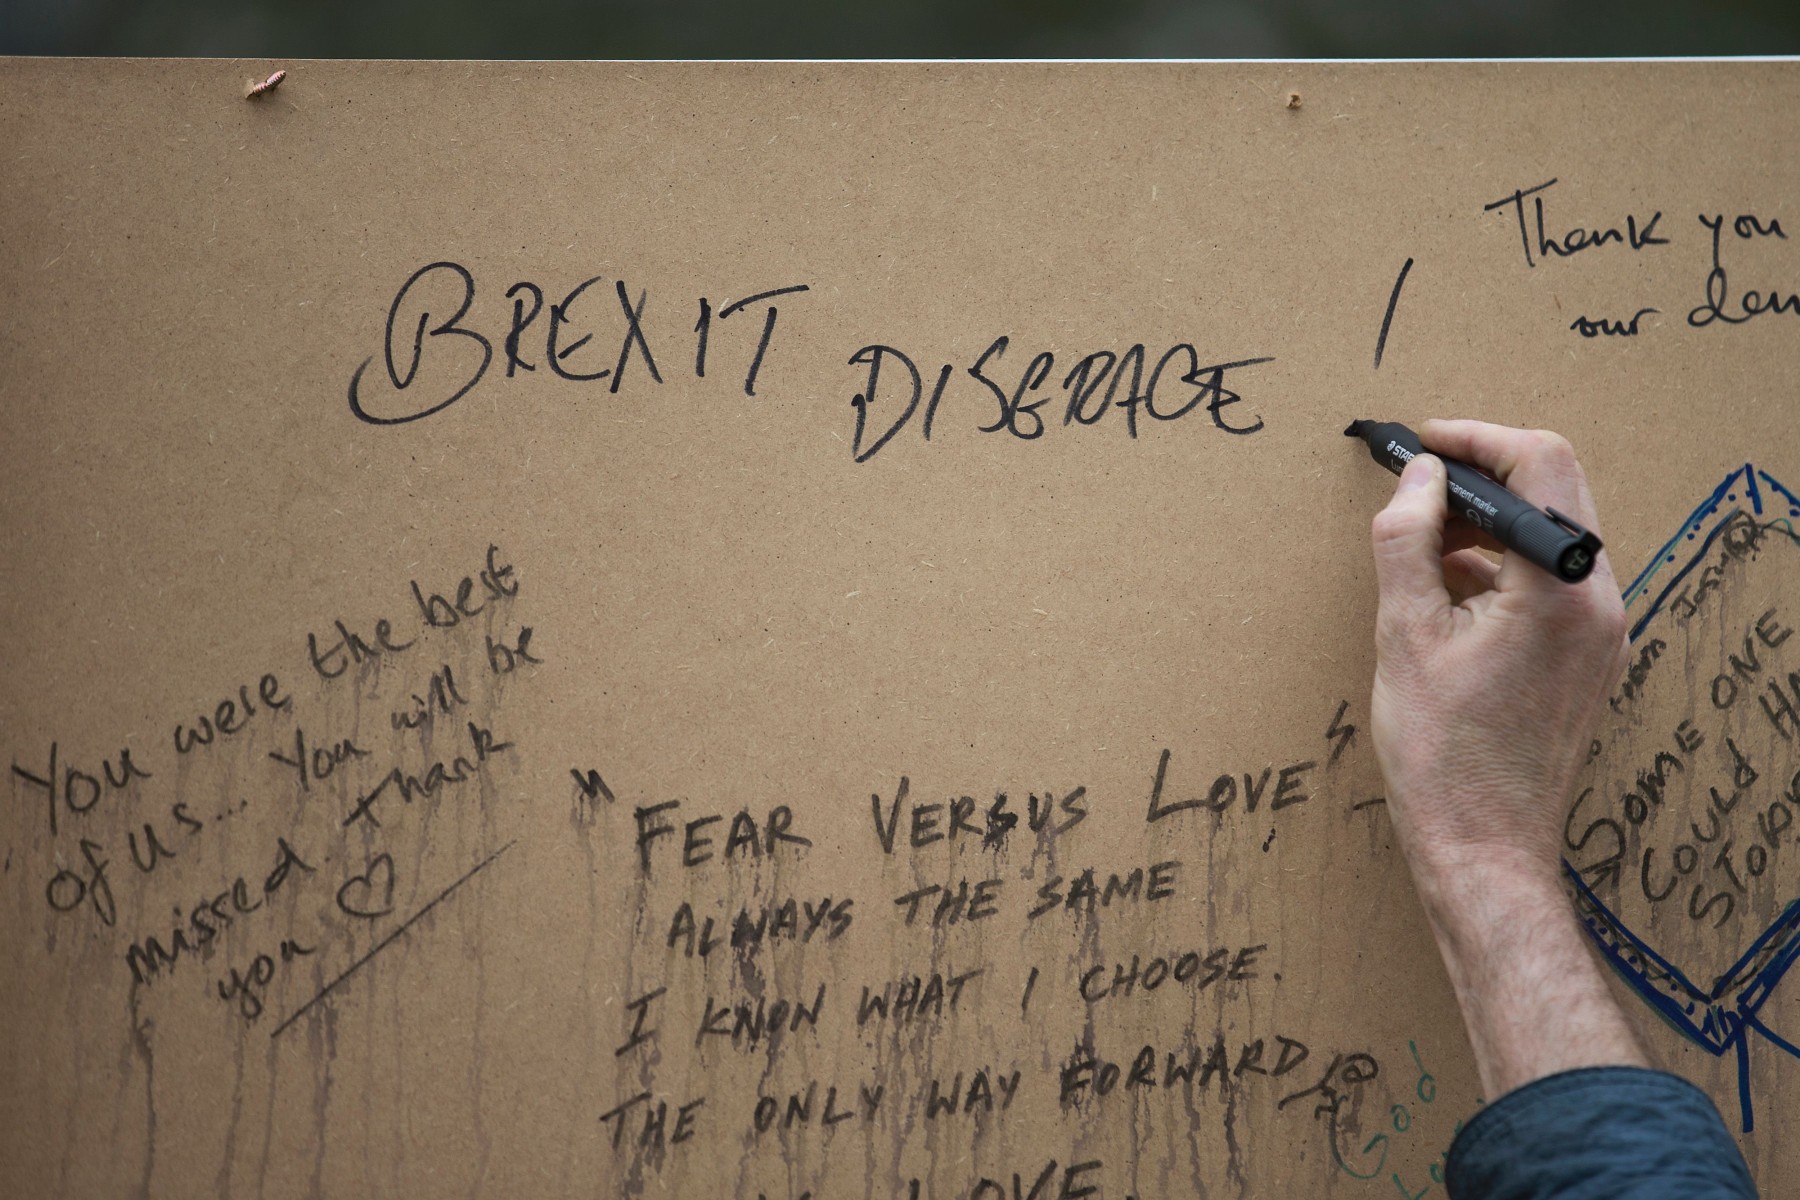 BREXIT DISGRACE !
Thank you
our dem
You were the best
of us... You will be
missed. Thank
you ♡
"FEAR VERSUS LOVE" -
ALWAYS THE SAME
I KNOW WHAT I CHOOSE.
THE ONLY WAY FORWARD
LOVE.
STAE
permanent marker
SOME ONE
COULD HA
STOP
Good